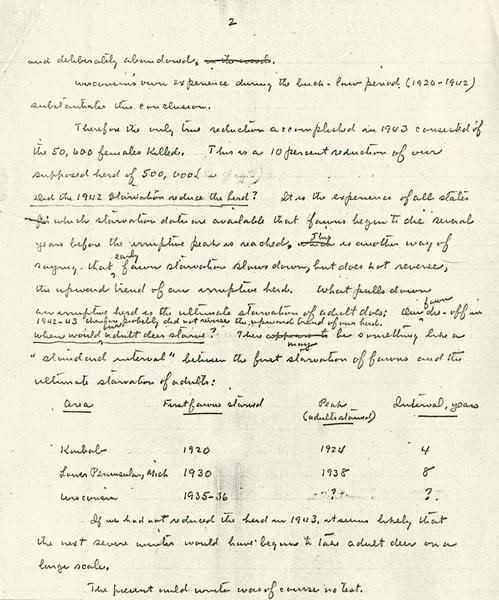 2
and deliberately abandoned, in the woods.
Wisconsin's own experience during the buck-law period (1920-1942)
substantiates this conclusion.
Therefore the only true reduction accomplished in 1943 consisted of
the 50,000 females killed. This is a 10 percent reduction of our
supposed herd of 500,000
Did the 1942 starvation reduce the herd? It is the experience of all states
for which starvation data are available that fawns begin to die several
years before the irruptive peak is reached, which This is another way of
saying that early fawn starvation slows down, but does not reverse,
the upward trend of an irruptive herd. What pulls down
an irruptive herd is the ultimate starvation of adult does. Our fawn die-off in
1942-43 therefore probably did not reverse the upward trend of our herd.
When would adult deer starve? There appears to may be something like a
"standard interval" between the first starvation of fawns and the
ultimate starvation of adults:
Area First fawns starved Peak (adults starved) Interval, years
Kaibab 1920 1924 4
Lower Peninsula, Mich 1930 1938 8
Wisconsin 1935-36 ? ?
If we had not reduced the herd in 1943, it seems likely that
the next severe winter would have begun to take adult deer on a
large scale.
The present mild winter was of course no test.